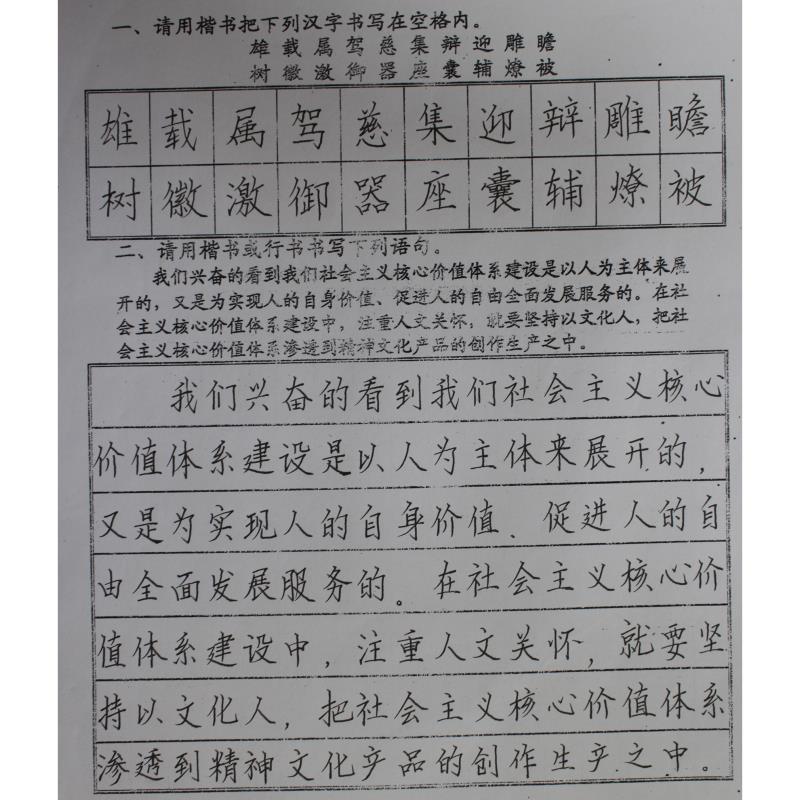 一、请用楷书把下列汉字书写在空格内。
雄载属驾慈集辩迎雕瞻
树徽激御器座囊辅燎被
雄载属驾慈集迎辩雕瞻
树徽激御器座囊辅燎被
二、请用楷书或行书书写下列语句。
我们兴奋的看到我们社会主义核心价值体系建设是以人为主体来展
开的，又是为实现人的自身价值、促进人的自由全面发展服务的。在社
会主义核心价值体系建设中，注重人文关怀，就要坚持以文化人，把社
会主义核心价值体系渗透到精神文化产品的创作生产之中。
我们兴奋的看到我们社会主义核心
价值体系建设是以人为主体来展开的，
又是为实现人的自身价值、促进人的自
由全面发展服务的。在社会主义核心价
值体系建设中，注重人文关怀，就要坚
持以文化人，把社会主义核心价值体系
渗透到精神文化产品的创作生产之中。